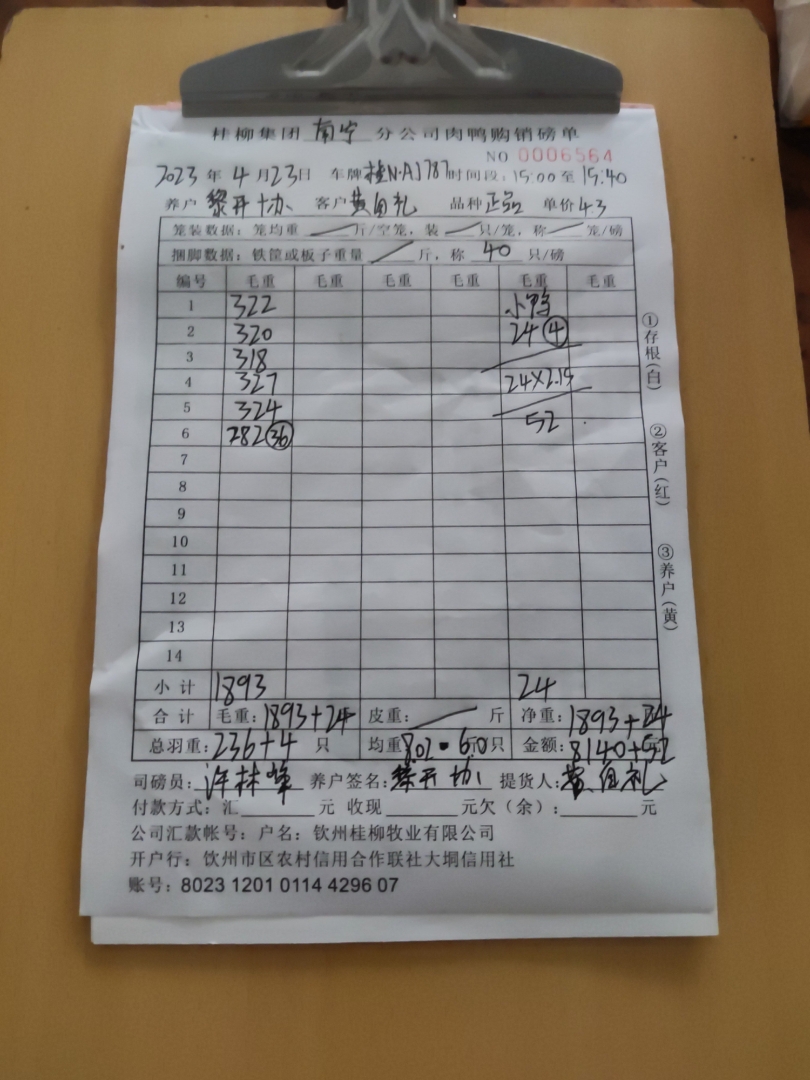 桂柳集团 南宁 分公司肉鸭购销磅单
NO 0006564
2023 年 4 月 23 日 车牌 桂N·A1787 时间段: 15:00 至 15:40
养户 黎开协 客户 黄自礼 品种 正品 单价 4.3
笼装数据: 笼均重 / 斤/空笼, 装 / 只/笼, 称 / 笼/磅
捆脚数据: 铁筐或板子重量 / 斤, 称 40 只/磅
编号 毛重 毛重 毛重 毛重 毛重 毛重
1 322 小鸭
2 320 24 ④
3 318
4 327 24×2.15
5 324 52
6 282 ㊱
7
8
9
10
11
12
13
14
小计 1893 24
合计 毛重: 1893+24 皮重: / 斤 净重: 1893+24
总羽重: 236+4 只 均重 8.02 · 6.0 只 金额: 8140+52
司磅员: 许林峰 养户签名: 黎开协 提货人: 黄自礼
付款方式: 汇 元 收现 元欠(余): 元
公司汇款帐号: 户名: 钦州桂柳牧业有限公司
开户行: 钦州市区农村信用合作联社大垌信用社
账号: 8023 1201 0114 4296 07
①存根(白)
②客户(红)
③养户(黄)